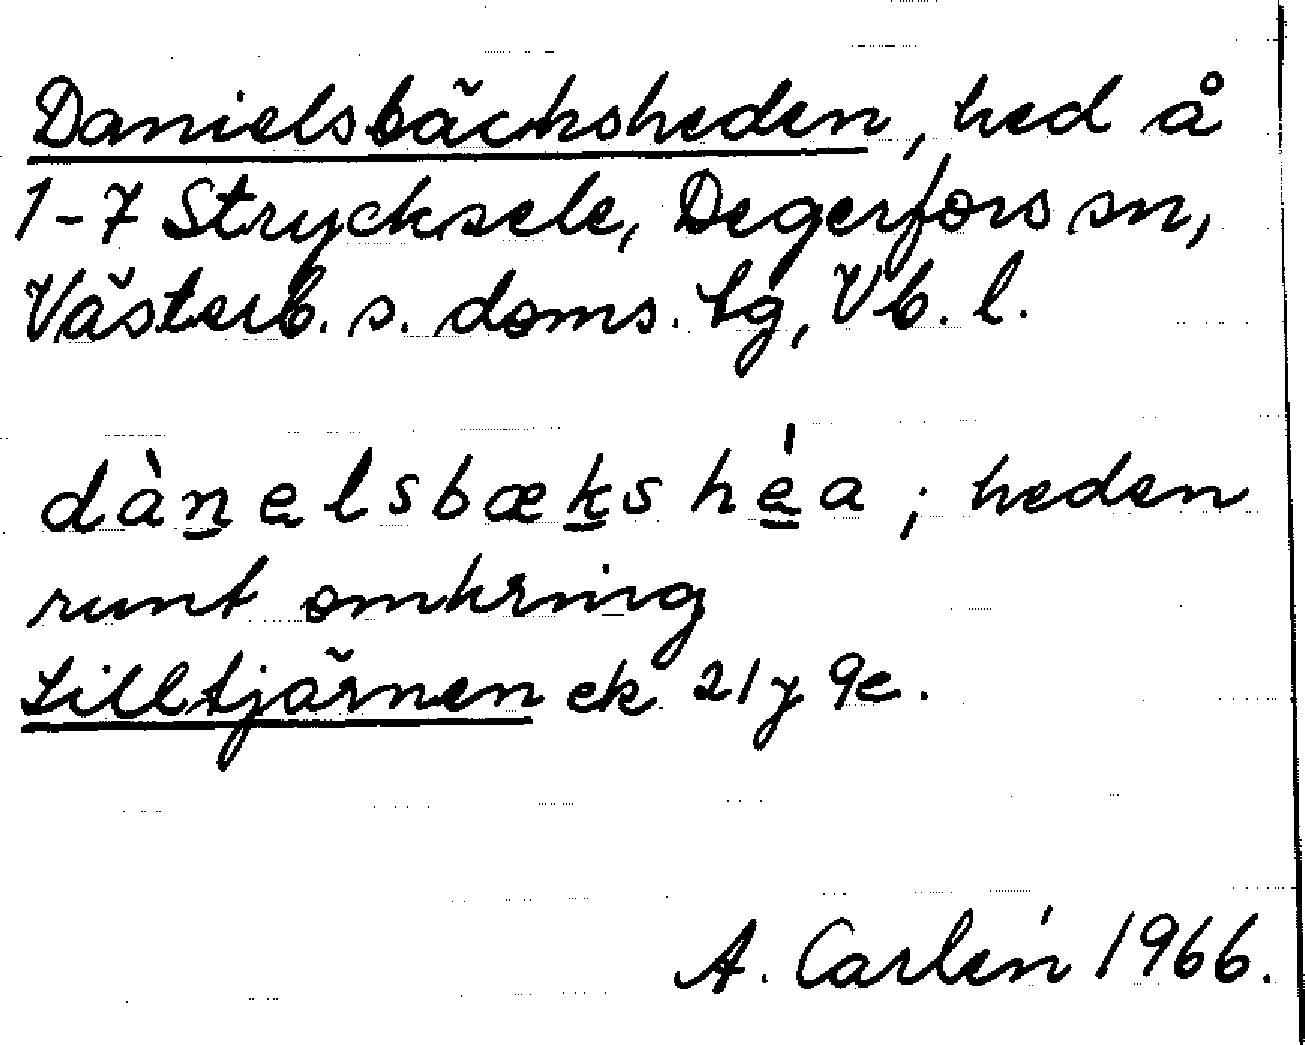 Danielsbäcksheden, hed å
1-7 Strycksele, Degerfors sn,
Västerb. s. doms. tg, Vb. l.
dànelsbæks héa; heden
runt omkring
Lilltjärnen ek 21 y 9e.
A. Carlén 1966.